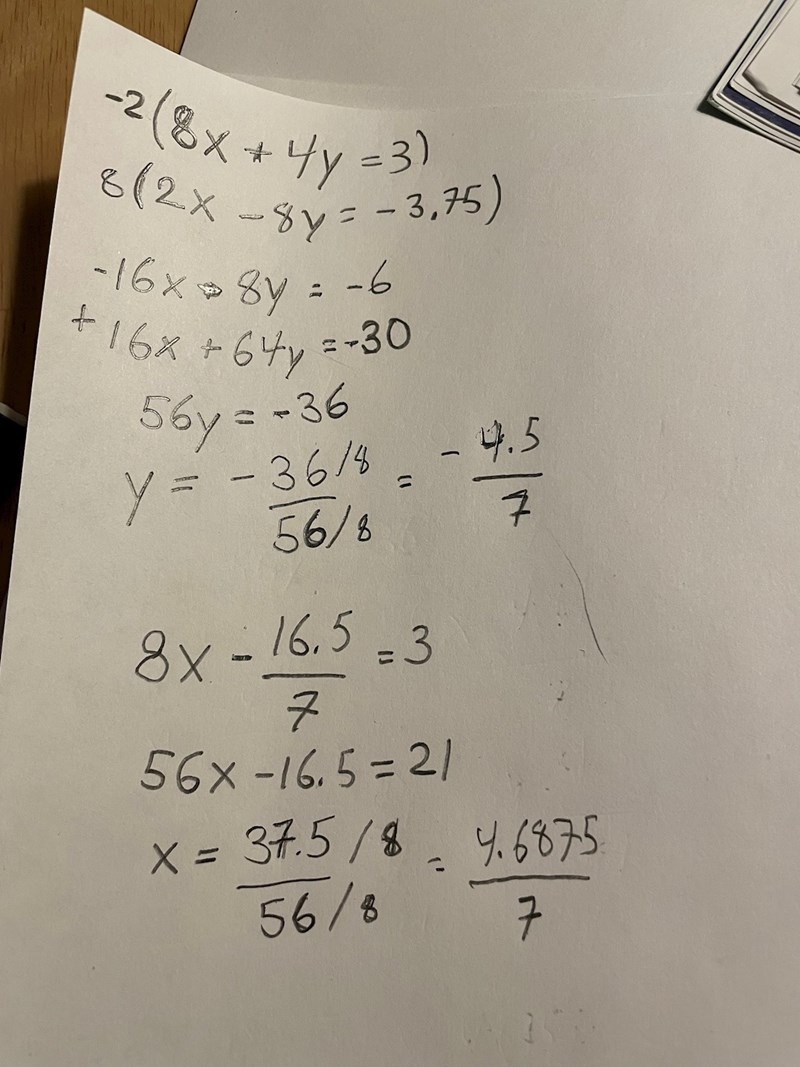 -2(8x + 4y = 3)
8(2x - 8y = -3.75)
-16x - 8y = -6
+ 16x + 64y = -30
56y = -36
y = - 36/8 / 56/8 = - 4.5/7
8x - 16.5/7 = 3
56x - 16.5 = 21
x = 37.5/8 / 56/8 = 4.6875/7